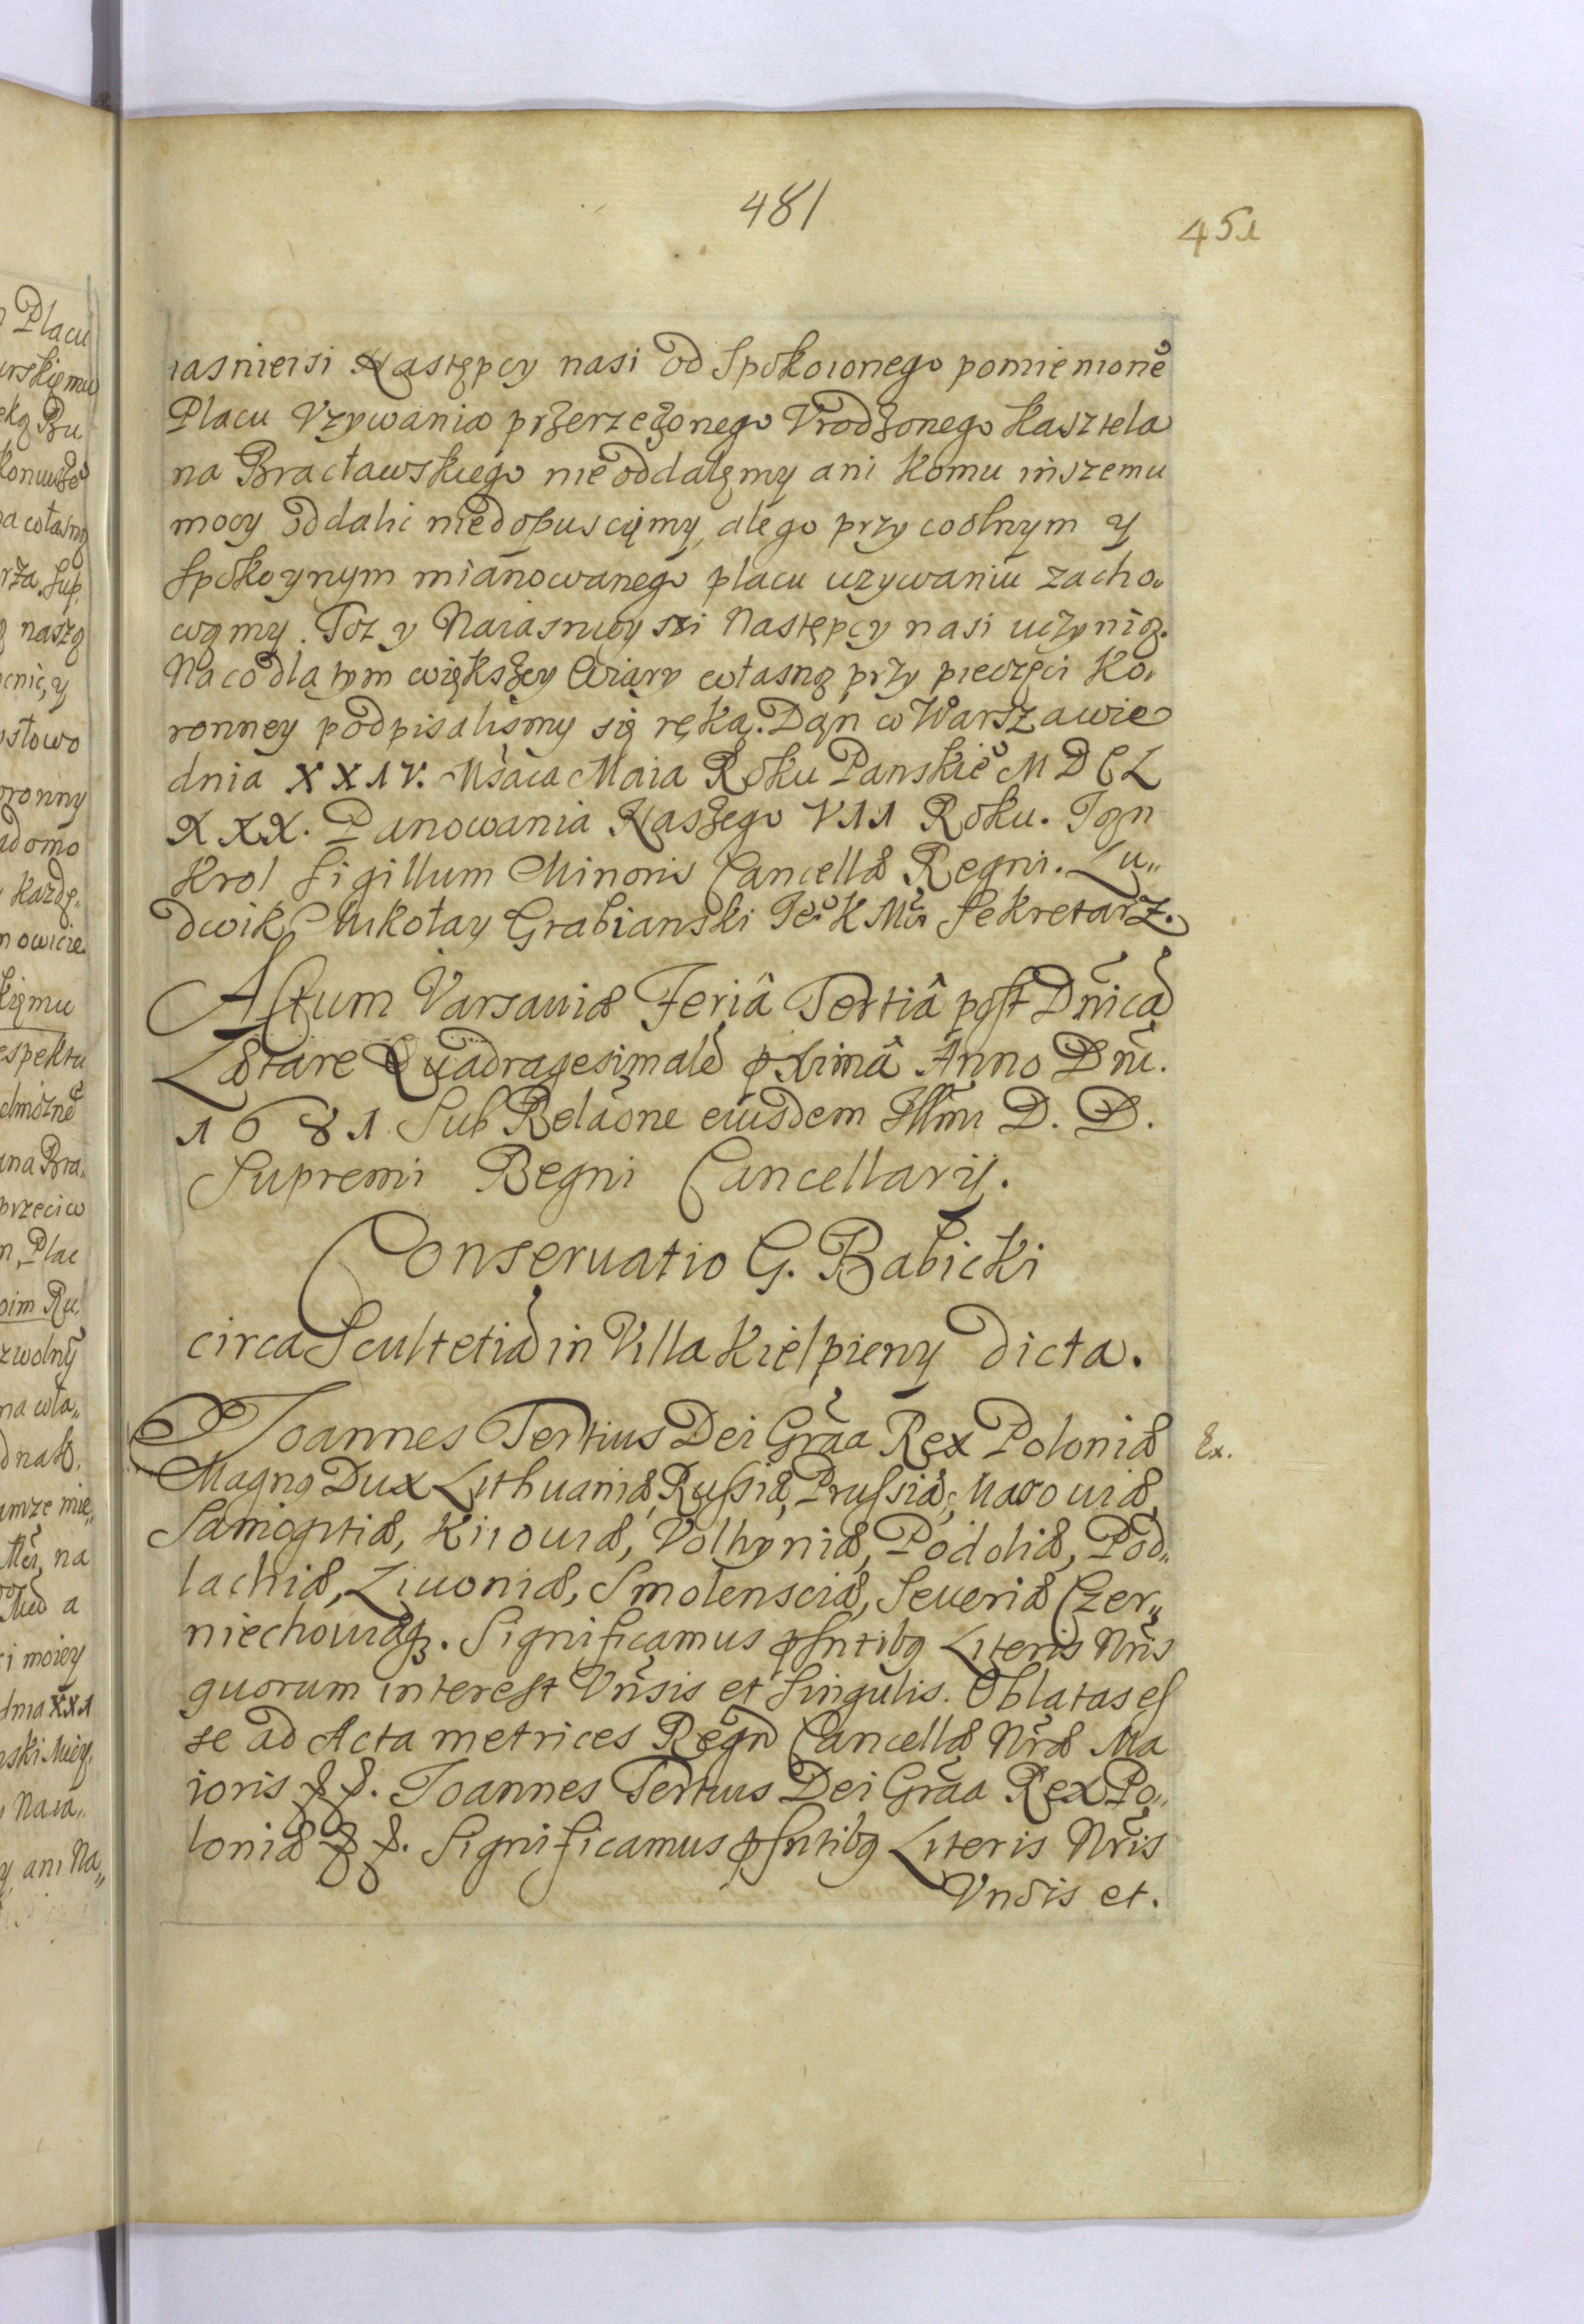 481
451
iasnieisi Następcy nasi od Spokoionego pomienionė
Placu Vzywania przerzeczonego Vrodzonego Kasztela
na Bracławskiego nie oddalęmy ani Komu inszemu
mocy oddalic niedopuscięmy, alego przy coolnym y
Spokoynym mianowanego placu uzywaniu zacho„
wamy. Toz y Naiasnieysi Następcy nasi uczynią.
Na co dla tym większey Wiary własną przy pieczęci Ko„
ronney podpisalismy się ręką. Dan w Warszawie
dnia XXIV. Msaca Maia Roku Panskiė M D C L
XXX. Panowania Naszego VII Roku. Jan
Krol Sigillum Minoris Cancellæ Regni. Lu„
dwik Mikołay Grabianski Jeo K Mci Sekretarz.
Actum Varsauiæ Feriâ Tertiâ post Dñica
Lætare Quadragesimale pximâ Anno Dñi.
1681 Sub Relaõne eiusdem Illmi D. D.
Supremi Regni Cancellarij.
Conseruatio G. Babicki
circa Scultetia in Villa Kielpieny dicta.
Joannes Tertius Dei Grãa Rex Poloniæ
Ex.
Magnꝯ Dux Lithuaniæ, Russiæ, Prussiæ, Masouiæ,
Samogitiæ, Kiiouiæ, Volhyniæ, Podoliæ, Pod„
lachiæ, Liuoniæ, Smolensciæ, Seueriæ Czer„
niechouiæqꝫ. Significamus pñtibꝯ Literis Nris
quorum interest Vñsis et singulis. Oblatas es
se ad Acta metrices Regñ Cancellæ Nræ Ma
ioris &&. Joannes Tertius Dei Grãa Rex Po„
loniæ &&. Significamus pñtibꝯ Literis Nris
Vnsis et.